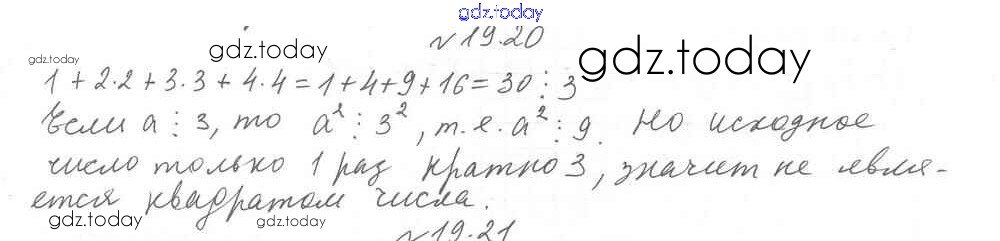 gdz.today
N 19.20
gdz.today
gdz.today
gdz.today
1 + 2·2 + 3·3 + 4·4 = 1+4+9+16 = 30 ⋮ 3
Если a ⋮ 3, то a² ⋮ 3², т.е. a² ⋮ 9. Но исходное
число только 1 раз кратно 3, значит не явля-
ется квадратом числа.
gdz.today
gdz.today
gdz.today
N 19.21